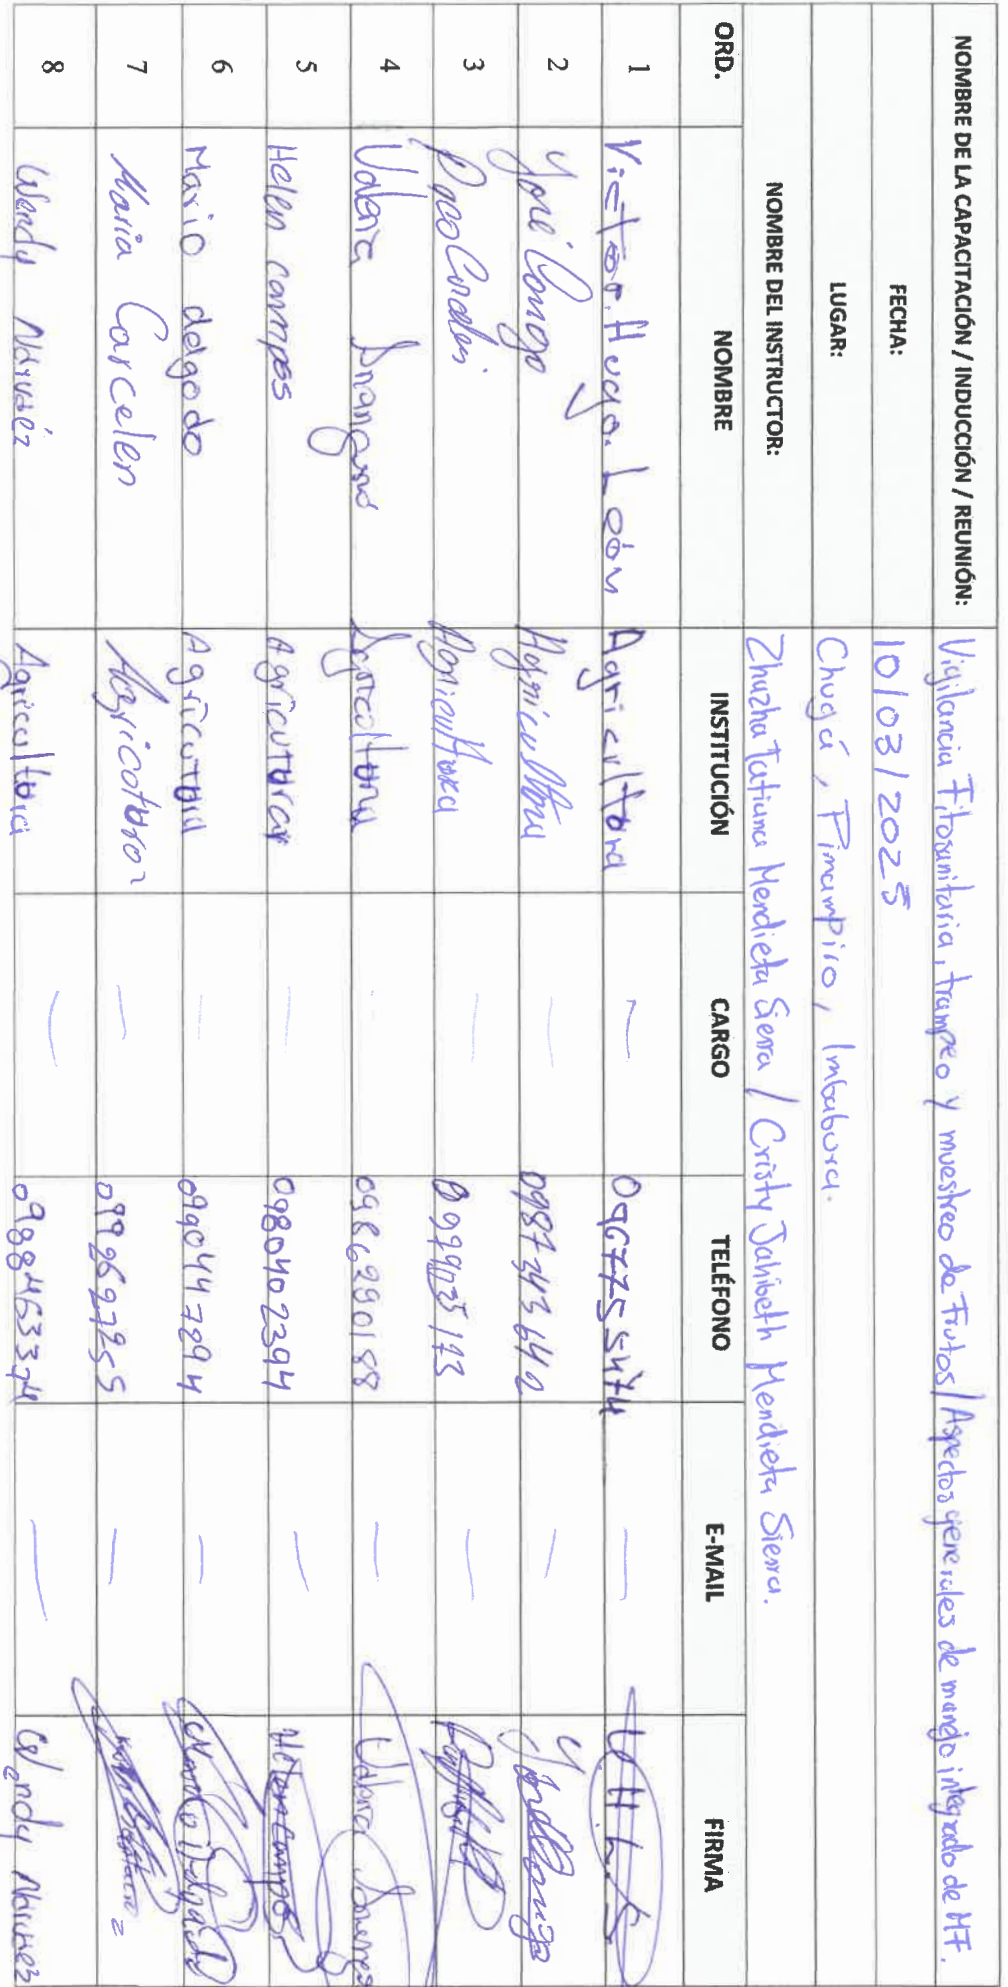 NOMBRE DE LA CAPACITACIÓN / INDUCCIÓN / REUNIÓN: Vigilancia Fitosanitaria, trampeo y muestreo de Frutos / Aspectos generales de manejo integrado de MF.
FECHA: 10/03/2025
LUGAR: Chugá, Pimampiro, Imbabura.
NOMBRE DEL INSTRUCTOR: Zhuzha Tatiana Mendieta Sierra / Cristy Jahibeth Mendieta Sierra.
ORD. NOMBRE INSTITUCIÓN CARGO TELÉFONO E-MAIL FIRMA
1 Victor. Hugo. León Agricultora — 0967755474 — V.H.L
2 José Congo Agricultora — 0987343642 —
3 Agricultora — 0999035173 —
4 Valeria Agricoltona — 0986290188 — Valeria
5 Helen campos Agricutora — 0980402394 — Helen campos
6 Mario delgado Agricutora — 0990447894 — Mario delgado
7 Maria Carcelen Agricotora — 0992692955 —
8 Wendy Narváez Agricultora — 0988463374 — Wendy Narváez